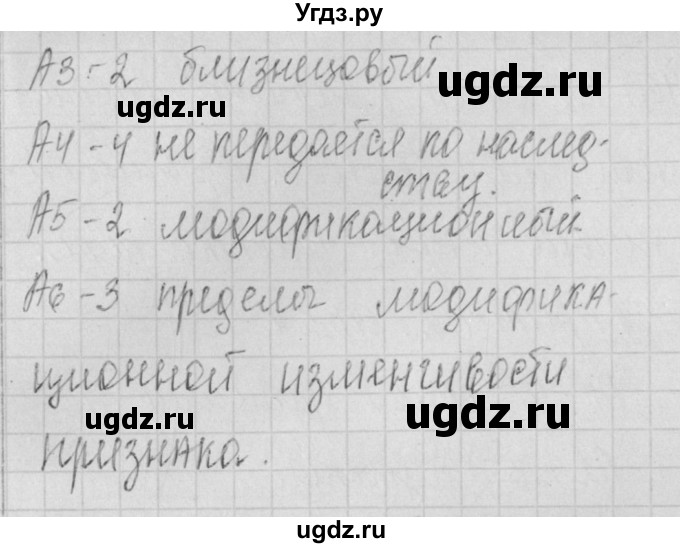 Угдз.ру
А3-2 близнецовый
ugdz.ru
ugdz.ru
А4-4 не передается по наслед-
ству.
ugdz.ru
А5-2 модификационный
А6-3 пределы модифика-
ционной изменчивости
ugdz.ru
ugdz.ru
признака.
ugdz.ru